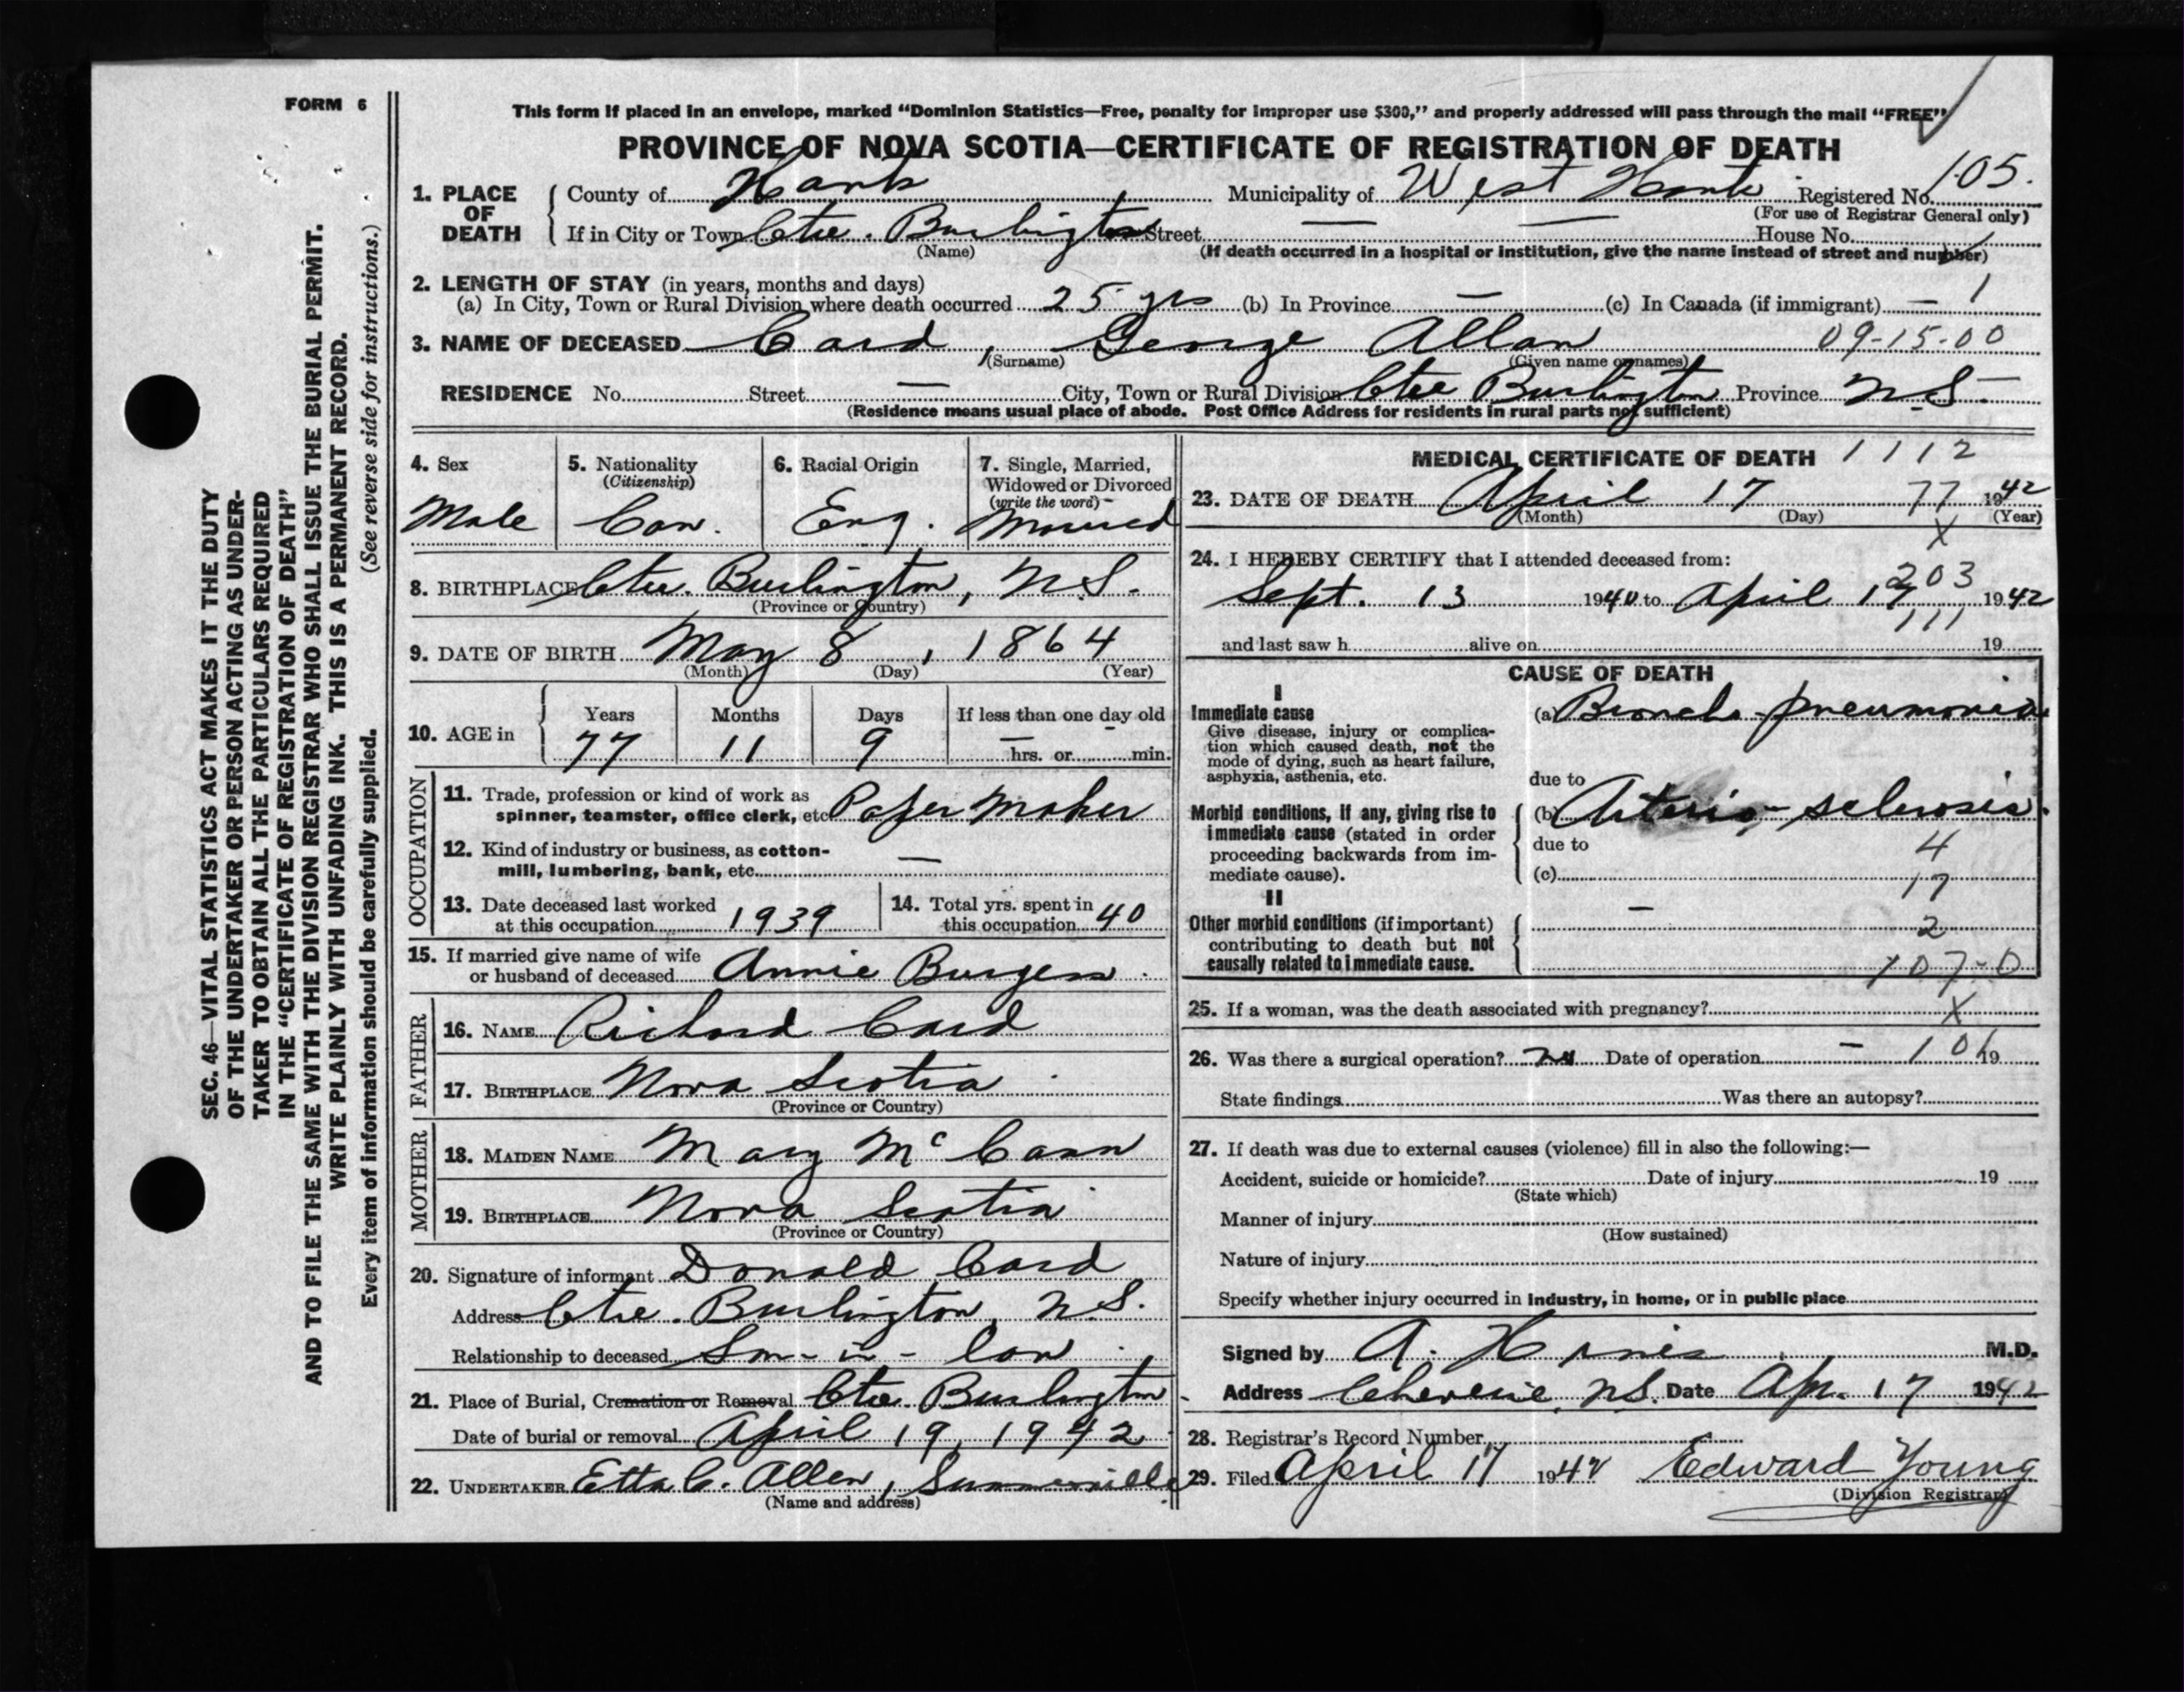 FORM 6
This form if placed in an envelope, marked “Dominion Statistics—Free, penalty for improper use $300,” and properly addressed will pass through the mail “FREE”
PROVINCE OF NOVA SCOTIA—CERTIFICATE OF REGISTRATION OF DEATH
1. PLACE OF DEATH
County of Hants Municipality of West Hants Registered No. 105.
(For use of Registrar General only)
If in City or Town Ctre. Burlington Street — — House No.
(Name) (If death occurred in a hospital or institution, give the name instead of street and number)
2. LENGTH OF STAY (in years, months and days)
(a) In City, Town or Rural Division where death occurred 25 yrs (b) In Province — (c) In Canada (if immigrant) — 1
3. NAME OF DECEASED Card, George Allan 09-15-00
(Surname) (Given name or names)
RESIDENCE No. Street — City, Town or Rural Division Ctre Burlington Province N.S.
(Residence means usual place of abode. Post Office Address for residents in rural parts not sufficient)
4. Sex 5. Nationality 6. Racial Origin 7. Single, Married,
(Citizenship) Widowed or Divorced
(write the word)
Male Can. Eng. Married
8. BIRTHPLACE Ctre. Burlington, N.S.
(Province or Country)
9. DATE OF BIRTH May 8, 1864
(Month) (Day) (Year)
10. AGE in Years Months Days If less than one day old
77 11 9 — hrs. or — min.
OCCUPATION
11. Trade, profession or kind of work as
spinner, teamster, office clerk, etc. Paper Maker
12. Kind of industry or business, as cotton-
mill, lumbering, bank, etc. —
13. Date deceased last worked
at this occupation 1939
14. Total yrs. spent in
this occupation 40
15. If married give name of wife
or husband of deceased Annie Burgess
FATHER
16. NAME Richard Card
17. BIRTHPLACE Nova Scotia
(Province or Country)
MOTHER
18. MAIDEN NAME Mary McCann
19. BIRTHPLACE Nova Scotia
(Province or Country)
20. Signature of informant Donald Card
Address Ctre. Burlington, N.S.
Relationship to deceased Son-in-law
21. Place of Burial, Cremation or Removal Ctre Burlington
Date of burial or removal April 19, 1942
22. UNDERTAKER Etta C. Allen, Summerville
(Name and address)
MEDICAL CERTIFICATE OF DEATH 1112
23. DATE OF DEATH April 17 77 1942
(Month) (Day) (Year)
X
24. I HEREBY CERTIFY that I attended deceased from:
203
Sept. 13 1940 to April 17 1942
111
and last saw h alive on 19
CAUSE OF DEATH
I
Immediate cause
Give disease, injury or complica-
tion which caused death, not the
mode of dying, such as heart failure,
asphyxia, asthenia, etc.
(a) Broncho-pneumonia
due to
Morbid conditions, if any, giving rise to
immediate cause (stated in order
proceeding backwards from im-
mediate cause).
(b) Arterio-sclerosis.
due to 4
(c)
17
II
Other morbid conditions (if important)
contributing to death but not
causally related to immediate cause.
—
2
107-0
25. If a woman, was the death associated with pregnancy? X
26. Was there a surgical operation? No Date of operation — 19
State findings Was there an autopsy?
27. If death was due to external causes (violence) fill in also the following:—
Accident, suicide or homicide? Date of injury 19
(State which)
Manner of injury
(How sustained)
Nature of injury
Specify whether injury occurred in industry, in home, or in public place
Signed by A. M.D.
Address Cheverie, N.S. Date Apr. 17 1942
28. Registrar's Record Number
29. Filed April 17 1942 Edward Young
(Division Registrar)
SEC. 46—VITAL STATISTICS ACT MAKES IT THE DUTY
OF THE UNDERTAKER OR PERSON ACTING AS UNDER-
TAKER TO OBTAIN ALL THE PARTICULARS REQUIRED
IN THE “CERTIFICATE OF REGISTRATION OF DEATH”
AND TO FILE THE SAME WITH THE DIVISION REGISTRAR WHO SHALL ISSUE THE BURIAL PERMIT.
WRITE PLAINLY WITH UNFADING INK. THIS IS A PERMANENT RECORD.
Every item of information should be carefully supplied. (See reverse side for instructions.)